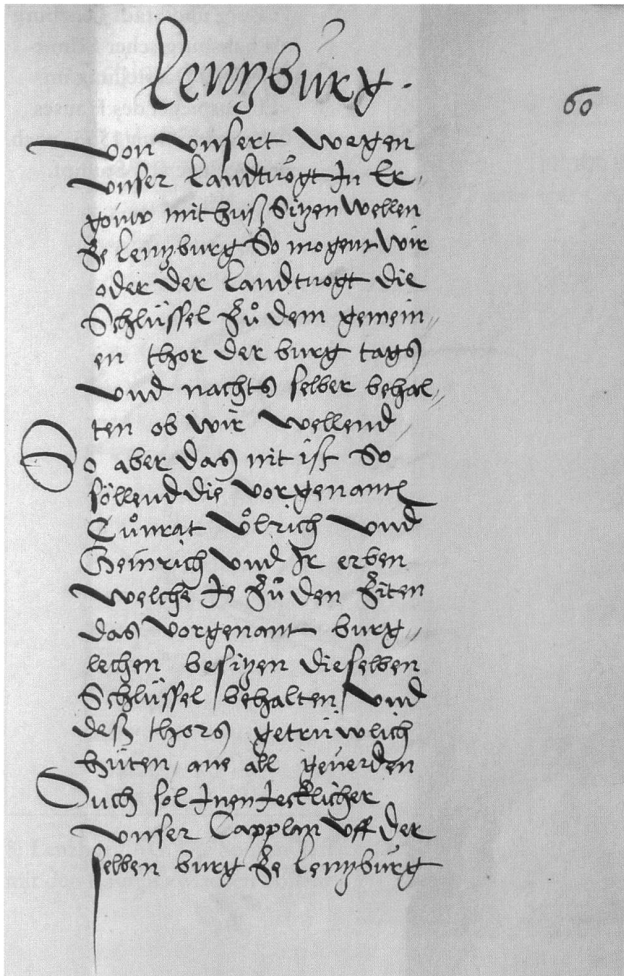 Lentzburg.
60
von unsert wegen
unser Landtvogt In Er¬
goüw mit huß Sitzen wellen
Ze Lentzburg So mogent wir
oder der Landtvogt die
Schlüssel Zů dem gemein¬
en thor der burg tags
und nachts selber behal¬
ten ob wir wellend
So aber das nit ist So
söllend die vorgenantt
Cůnrat Ůlrich und
Heinrich und Ir erben
welche Je Zů den Ziten
das vorgenant burg¬
lechen besitzen dieselben
Schlüssel behalten und
deß thors getrüwlich
hüten ane all geverden
Ouch sol Inen Jecklicher
unser Capplan uff der
selben burg Ze Lentzburg